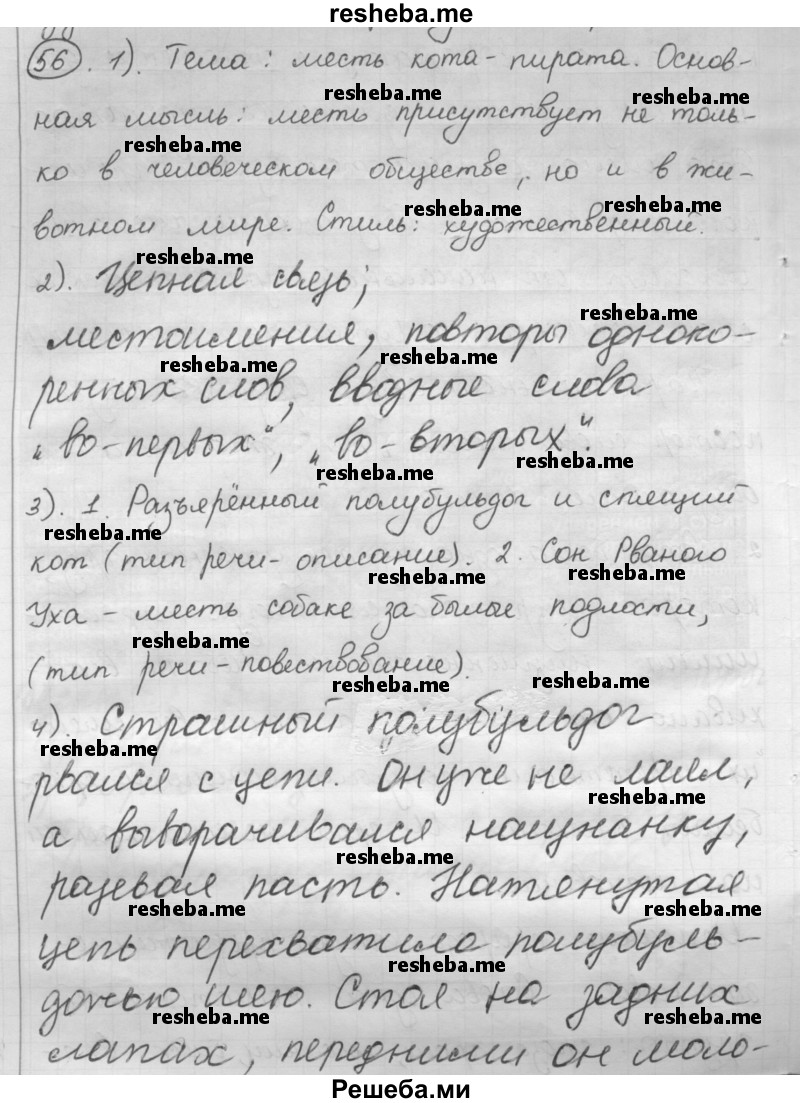 resheba.me
56. 1). Тема: месть кота-пирата. Основ-
resheba.me
resheba.me
ная мысль: месть присутствует не толь-
resheba.me
ко в человеческом обществе, но и в жи-
resheba.me
resheba.me
вотном мире. Стиль: художественный.
resheba.me
2). Цепная связь;
resheba.me
местоимения, повторы одноко-
resheba.me
resheba.me
ренных слов, вводные слова
„во-первых“, „во-вторых“.
resheba.me
resheba.me
3). 1. Разъярённый полубульдог и спящий
resheba.me
кот (тип речи-описание). 2. Сон Рваного
resheba.me
resheba.me
Уха - месть собаке за былые подлости,
resheba.me
(тип речи-повествование).
resheba.me
resheba.me
4). Страшный полубульдог
resheba.me
рвался с цепи. Он уже не лаял,
resheba.me
а выворачивался наизнанку,
resheba.me
разевая пасть. Натянутая
resheba.me
resheba.me
цепь перехватила полубуль-
resheba.me
дожью шею. Стоя на задних
resheba.me
resheba.me
лапах, передними он моло-
Решеба.ми